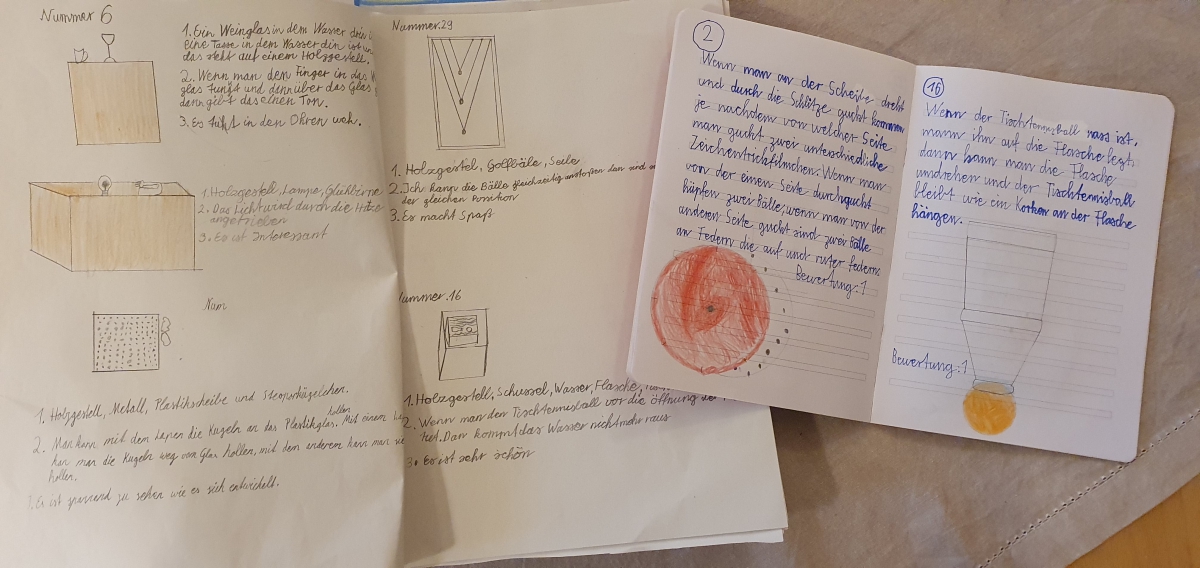 Nummer 6
1. Ein Weinglas in dem Wasser drin
eine Tasse in dem Wasser din ist
das steht auf einem Holzgestell.
2. Wenn man den Finger in das
glas und dann über das Glas
dann gibt das einen Ton.
3. Es in den Ohren weh.
1. Holzgestell, Lampe, Glühbirne
2. Das Licht wird durch die Hitze
angetrieben
3. Es ist Interessant
Num
1. Holzgestell, Metall, Plastikscheibe und
2. Man kann mit dem die Kugeln an das Plastikglas hollen. Mit einem
kan man die Kugeln weg vom Glas hollen, mit dem anderem kann man sie
hollen.
Es ist spannend zu sehen wie es sich entwickelt.
Nummer.29
1. Holzgestell, Golfbälle, Seile
2. Ich kann die Bälle gleichzeitig anstoßen
der gleichen Position
3. Es macht Spaß
Nummer.16
1. Holzgestell, Schussel, Wasser, Flasche,
2. Wenn man den Tischtennisball vor die öffnung
het. Dan kommt das Wasser nicht mehr raus
3. Es ist sehr schön
2
Wenn man an der Scheibe dreht
und durch die Schlitze guckt kommen
je nachdem von welcher Seite
man guckt zwei unterschiedliche
Zeichentrickfilmchen. Wenn man
von der einen Seite durchguckt
hüpfen zwei Bälle; wenn man von der
anderen Seite guckt sind zwei Bälle
an Federn die auf und runter federn.
Bewertung: 1
16
Wenn der Tischtennisball nass ist,
mann ihn auf die Flasche legt
dann kann man die Flasche
umdrehen und der Tischtennisball
bleibt wie ein Korken an der Flasche
hängen.
Bewertung: 1